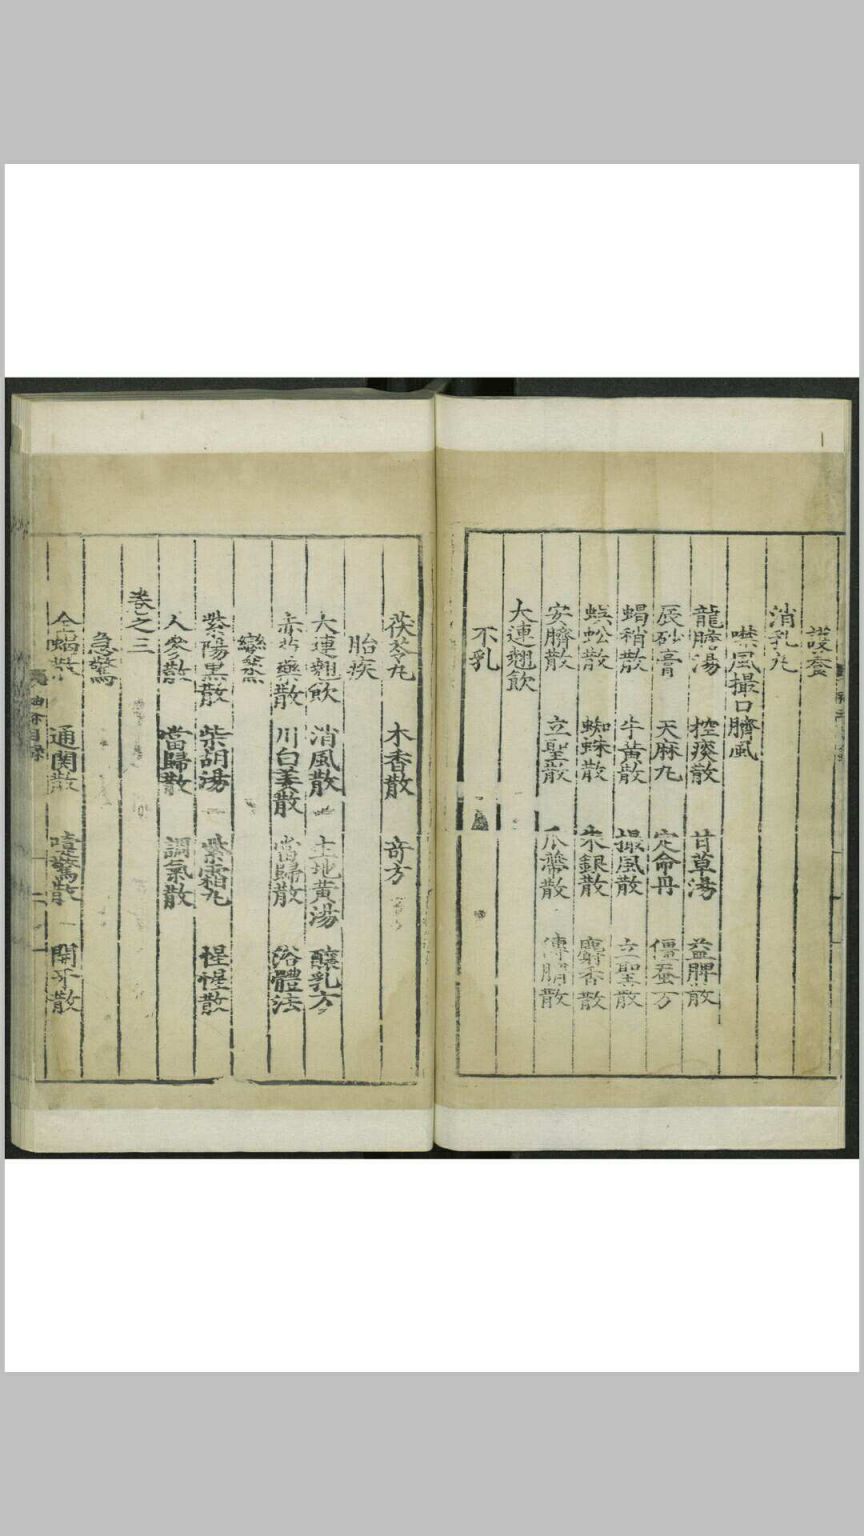 護養
消乳丸
噤風撮口臍風
龍膽湯 控痰散 甘草湯 益脾散
辰砂膏 天麻丸 定命丹 僵蚕方
蝎稍散 牛黃散 撮風散 立聖散
蜈蚣散 蜘蛛散 朱銀散 麝香散
安臍散 立聖散 瓜蒂散 傅臍散
大連翹飲
不乳
茯苓丸 木香散 奇方
胎疾
大連翹飲 消風散 生地黃湯 釀乳方
赤芍藥散 川白姜散 當歸散 浴體法
變蒸
紫陽黑散 柴胡湯 紫霜丸 惺惺散
人參散 當歸散 調氣散
卷之三
急驚
全蝎散 通関散 嚏驚散 開牙散